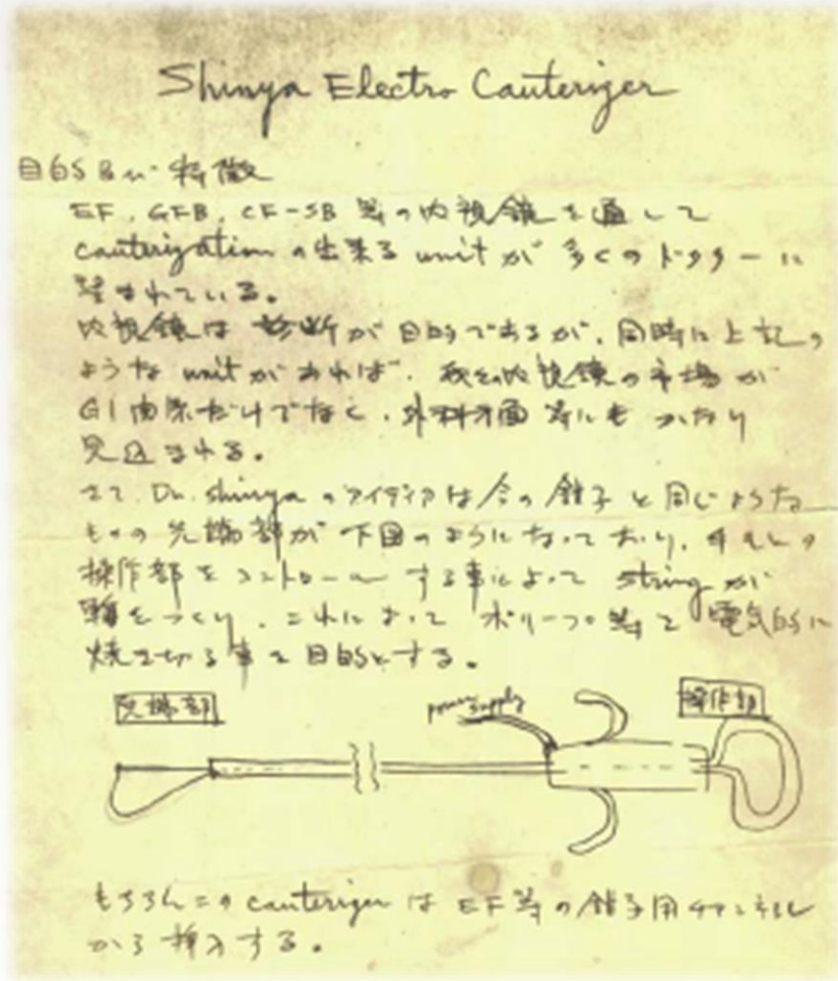 Shinya Electro Cauterizer
目的及び特徴
EF, GFB, CF-SB 等の内視鏡を通して
cauterization の出来る unit が多くのドクターに
望まれている。
内視鏡は診断が目的であるが、同時に上記の
ような unit があれば、我々の内視鏡の市場が
GI 関係だけでなく、外科方面等にもかなり
見込まれる。
さて、Dr. Shinya のアイディアは今の鉗子と同じような
ものの先端部が下図のようになっており、
操作部をコントロールする事によって string が
輪をつくり、これによってポリープ等を電気的に
焼き切る事を目的とする。
先端部
power supply
操作部
もちろんこの cauterizer は EF 等の鉗子用チャンネル
から挿入する。